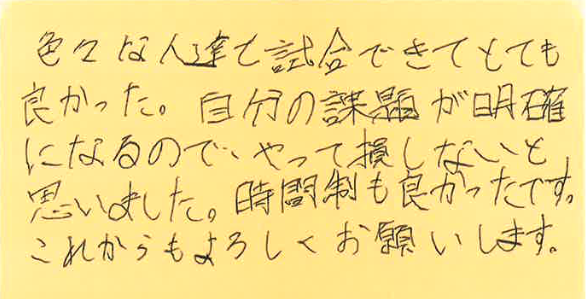 色々な人達と試合できてとても
良かった。自分の課題が明確
になるので、やって損しないと
思いました。時間制も良かったです。
これからもよろしくお願いします。